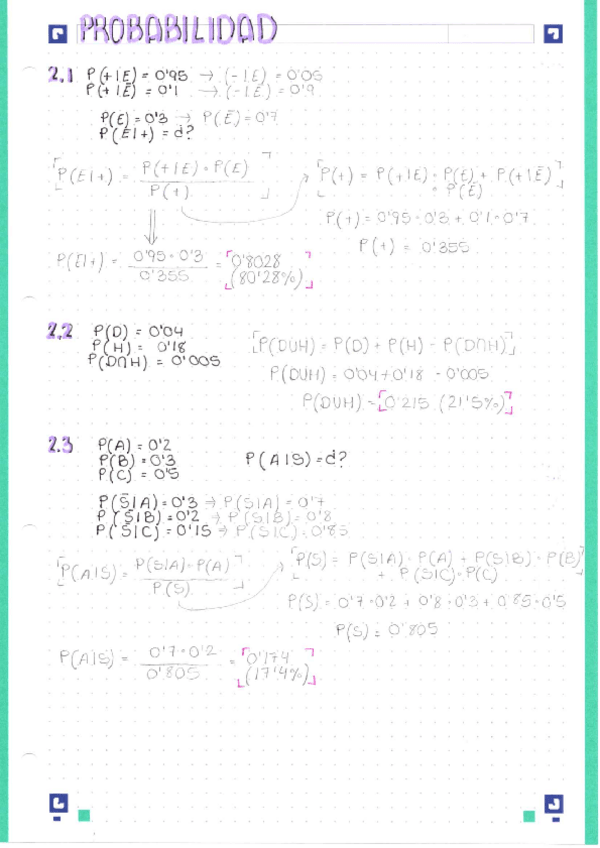 PROBABILIDAD
2,1 P(+|E) = 0'95 → (-|E) = 0'05
P(+|Ē) = 0'1 → (-|Ē) = 0'9
P(E) = 0'3 → P(Ē) = 0'7
P(E|+) = ¿?
P(E|+) = P(+|E) · P(E) / P(+)
P(+) = P(+|E) · P(E) + P(+|Ē) · P(Ē)
P(+) = 0'95 · 0'3 + 0'1 · 0'7
P(+) = 0'355
P(E|+) = 0'95 · 0'3 / 0'355 = 0'8028 (80'28%)
2,2 P(D) = 0'04
P(H) = 0'18
P(D∩H) = 0'005
P(DUH) = P(D) + P(H) - P(D∩H)
P(DUH) = 0'04 + 0'18 - 0'005
P(DUH) = 0'215 (21'5%)
2.3 P(A) = 0'2
P(B) = 0'3
P(C) = 0'5
P(A|S) = ¿?
P(S̄|A) = 0'3 → P(S|A) = 0'7
P(S̄|B) = 0'2 → P(S|B) = 0'8
P(S̄|C) = 0'15 → P(S|C) = 0'85
P(A|S) = P(S|A) · P(A) / P(S)
P(S) = P(S|A) · P(A) + P(S|B) · P(B)
+ P(S|C) · P(C)
P(S) = 0'7 · 0'2 + 0'8 · 0'3 + 0'85 · 0'5
P(S) = 0'805
P(A|S) = 0'7 · 0'2 / 0'805 = 0'174 (17'4%)